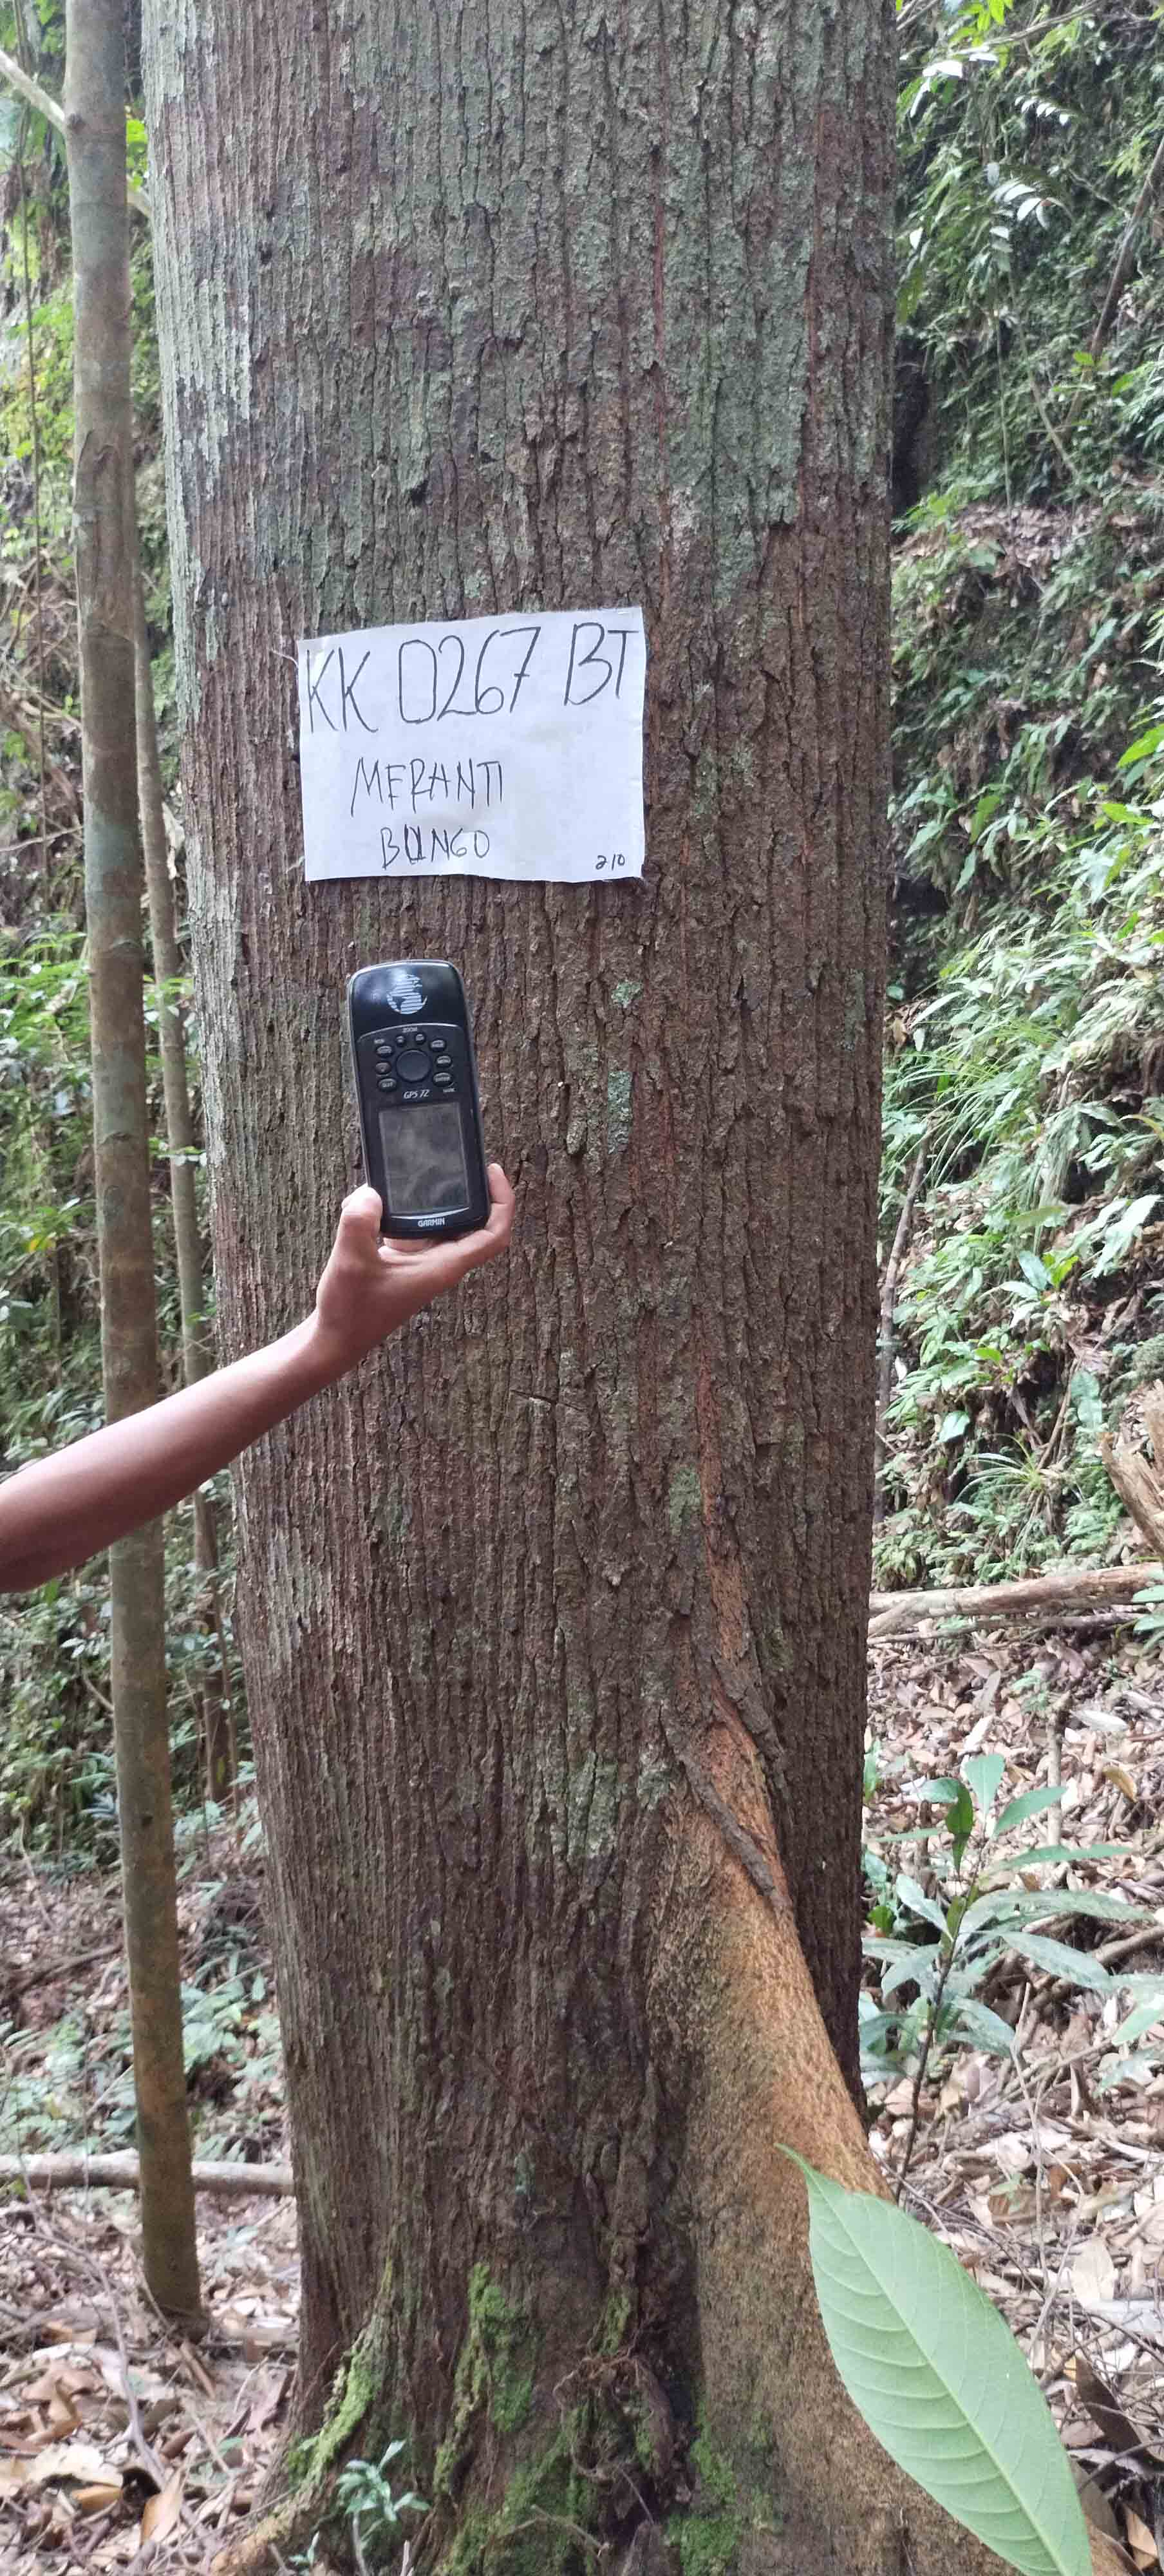 KK 0267 BT
MERANTI
BUNGO
210
ZOOM
GPS 72
GARMIN